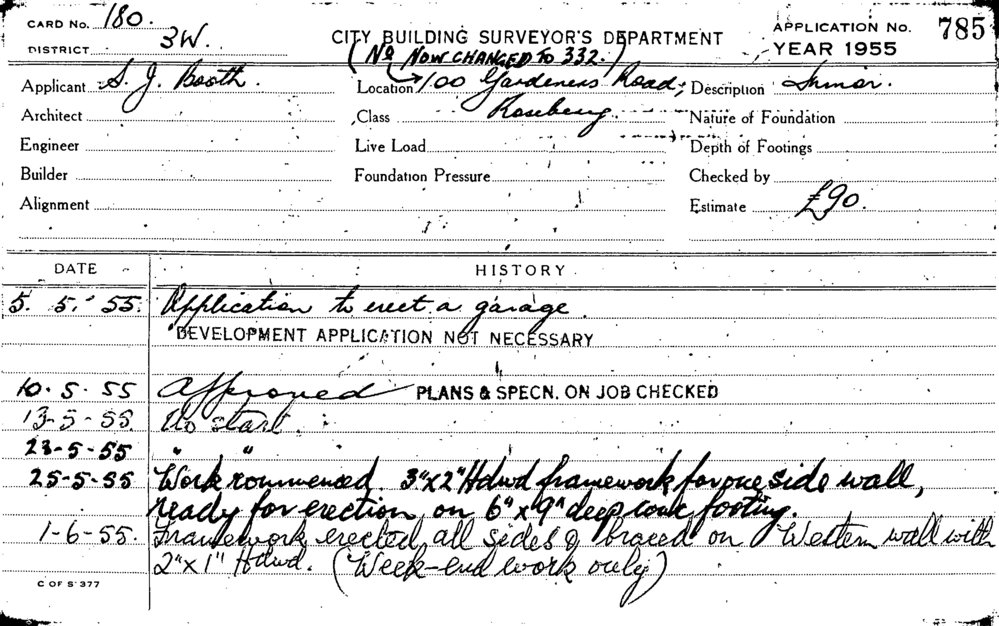 CARD No. 180.
DISTRICT 3W.
CITY BUILDING SURVEYOR'S DEPARTMENT
(No NOW CHANGED TO 332.)
APPLICATION No. 785
YEAR 1955
Applicant S. J. Booth.
Location 100 Gardeners Road,
Description Minor.
Architect
Class Rosebery
Nature of Foundation
Engineer
Live Load
Depth of Footings
Builder
Foundation Pressure
Checked by
Alignment
Estimate £90.
DATE HISTORY
5. 5. 55. Application to erect a garage.
DEVELOPMENT APPLICATION NOT NECESSARY
10. 5. 55 Approved PLANS & SPECN. ON JOB CHECKED
13-5-55. No start.
23-5-55 " "
25-5-55 Work commenced. 3"x2" Hdwd framework for one side wall,
ready for erection on 6" x 9" deep conc footing.
1-6-55. Framework erected all sides & braced on Western wall with
2"x1" Hdwd. (Week-end work only)
C OF S 377